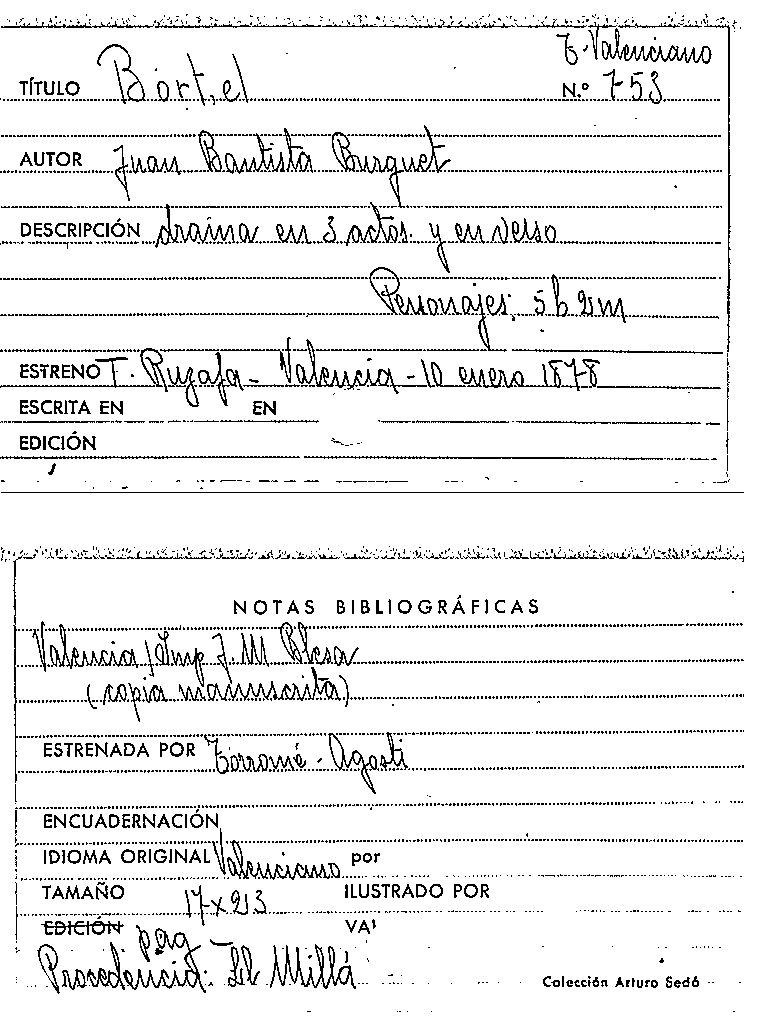 T. Valenciano
TÍTULO Bort, el N.º 753
AUTOR Juan Bautista Burguet
DESCRIPCIÓN drama en 3 actos. y en verso
Personajes: 5 h 2 m
ESTRENO T. Ruzafa - Valencia - 10 enero 1878
ESCRITA EN EN
EDICIÓN
NOTAS BIBLIOGRÁFICAS
Valencia / Imp J. M Blesa
(copia manuscrita)
ESTRENADA POR Torromé - Agosti
ENCUADERNACIÓN
IDIOMA ORIGINAL Valenciano por
TAMAÑO 17 x 213 ILUSTRADO POR
EDICIÓN pag -
Procedencia: Millá
Colección Arturo Sedó